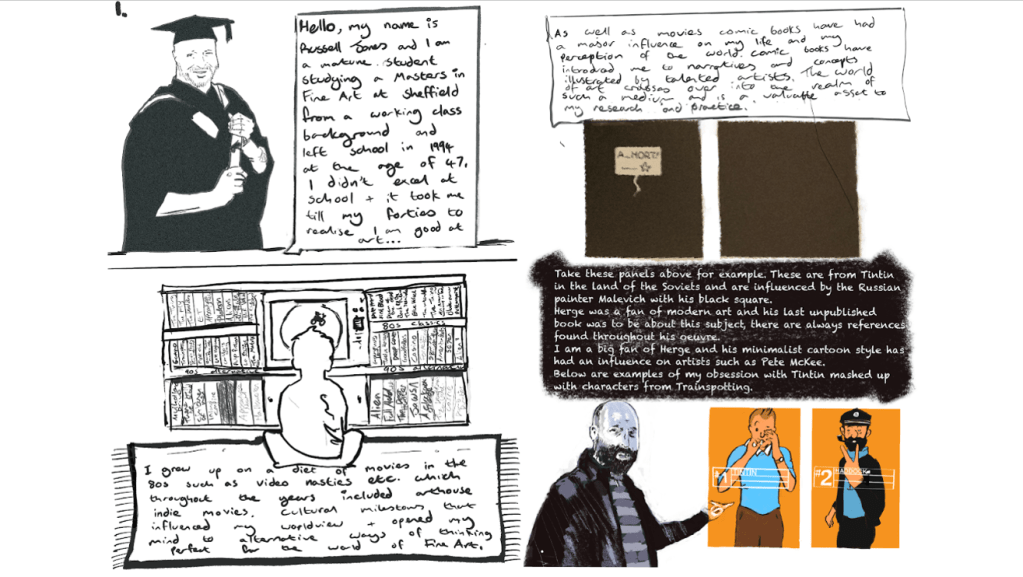 1.
Hello, my name is
Russell Jones and I am
a mature student
studying a Masters in
Fine Art at Sheffield
from a working class
background and
left school in 1994
at the age of 47.
I didn't excel at
school + it took me
till my forties to
realise I am good at
art...
80s classics
Alien
I grew up on a diet of movies in the
80s such as video nasties etc. which
throughout the years included arthouse
indie movies. Cultural milestones that
influenced my worldview + opened my
mind to alternative ways of thinking
perfect for the world of Fine Art.
As well as movies comic books have had
a major influence on my life and my
perception of the world. Comic books have
introduced me to narratives and concepts
illustrated by talented artists. The world
of art crosses over into the realm of
such a medium and is a valuable asset to
my research and practice.
Take these panels above for example. These are from Tintin
in the land of the Soviets and are influenced by the Russian
painter Malevich with his black square.
Herge was a fan of modern art and his last unpublished
book was to be about this subject, there are always references
found throughout his oeuvre.
I am a big fan of Herge and his minimalist cartoon style has
had an influence on artists such as Pete McKee.
Below are examples of my obsession with Tintin mashed up
with characters from Trainspotting.
#1 TINTIN
#2 HADDOCK